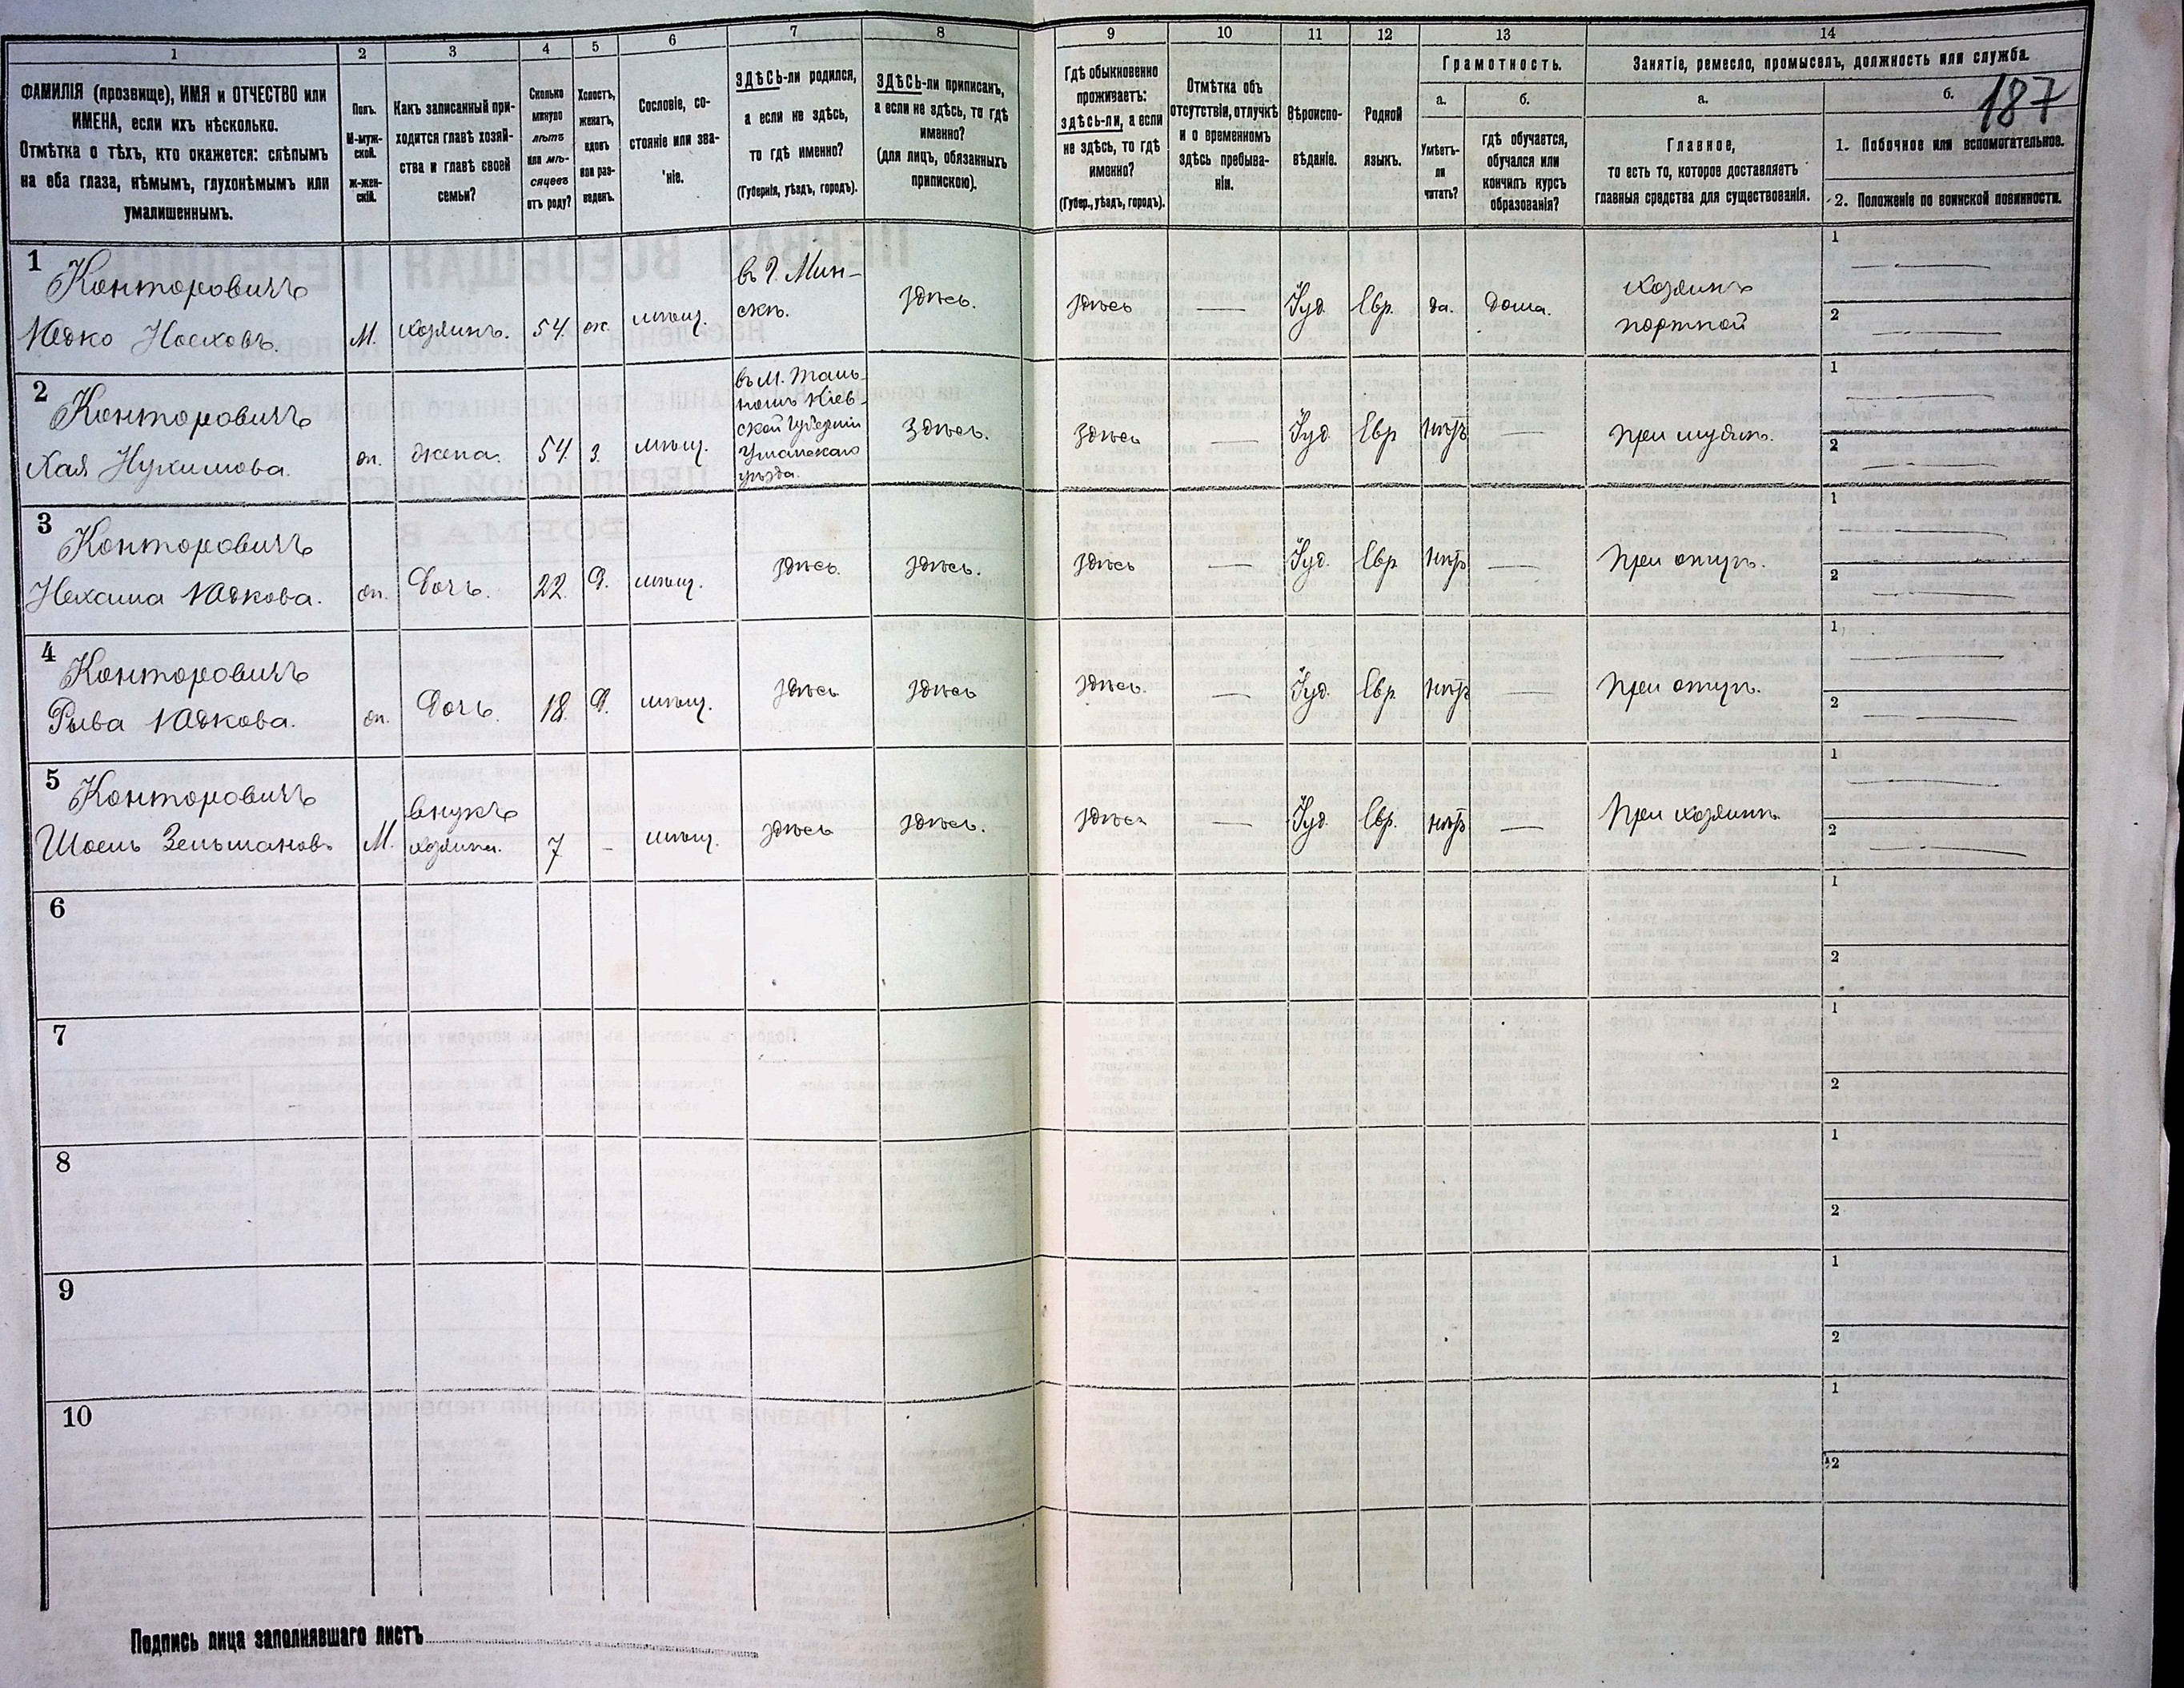 1 2 3 4 5 6 7 8 9 10 11 12 13 14
ФАМИЛІЯ (прозвище), ИМЯ и ОТЧЕСТВО или
ИМЕНА, если ихъ нѣсколько.
Отмѣтка о тѣхъ, кто окажется: слѣпымъ
на оба глаза, нѣмымъ, глухонѣмымъ или
умалишеннымъ.
Полъ.
М-муж-
ской.
Ж-жен-
скій.
Какъ записанный при-
ходится главѣ хозяй-
ства и главѣ своей
семьи?
Сколько
минуло
лѣтъ
или мѣ-
сяцевъ
отъ роду?
Холостъ,
женатъ,
вдовъ
или раз-
веденъ.
Сословіе, со-
стояніе или зва-
ніе.
ЗДѢСЬ-ли родился,
а если не здѣсь,
то гдѣ именно?
(Губернія, уѣздъ, городъ).
ЗДѢСЬ-ли приписанъ,
а если не здѣсь, то гдѣ
именно?
(для лицъ, обязанныхъ
припискою).
Гдѣ обыкновенно
проживаетъ:
здѣсь-ли, а если
не здѣсь, то гдѣ
именно?
(Губер., уѣздъ, городъ).
Отмѣтка объ
отсутствіи, отлучкѣ
и о временномъ
здѣсь пребыва-
ніи.
Вѣроиспо-
вѣданіе.
Родной
языкъ.
Грамотность.
а.
Умѣетъ-
ли
читать?
б.
гдѣ обучается,
обучался или
кончилъ курсъ
образованія?
Занятіе, ремесло, промыселъ, должность или служба.
а.
Главное,
то есть то, которое доставляетъ
главныя средства для существованія.
б.
187
1. Побочное или вспомогательное.
2. Положеніе по воинской повинности.
1
Конторовичъ
Юдко Носховъ.
М.
хозяинъ.
54
ж.
мѣщ.
въ г. Мин-
скѣ.
здѣсь.
здѣсь
Іуд.
Евр.
да.
дома.
хозяинъ
портной
1
2
2
Конторовичъ
Хая Нухимова.
ж.
жена.
54
з.
мѣщ.
въ М. Таль-
номъ Кіев-
ской Губерніи
Уманскаго
уѣзда.
здѣсь.
здѣсь
Іуд.
Евр
нѣтъ
при мужѣ.
1
2
3
Конторовичъ
Нехама Юдкова.
ж.
дочь.
22
д.
мѣщ.
здѣсь.
здѣсь.
здѣсь
Іуд.
Евр
нѣтъ
При отцѣ.
1
2
4
Конторовичъ
Рыва Юдкова.
ж.
дочь.
18.
д.
мѣщ.
здѣсь
здѣсь
здѣсь.
Іуд
Евр
нѣтъ
При отцѣ.
1
2
5
Конторовичъ
Шоель Зельмановъ
М.
внукъ
хозяина.
7
мѣщ.
здѣсь
здѣсь.
здѣсь
Іуд.
Евр.
нѣтъ
При хозяинѣ.
1
2
6
1
2
7
1
2
8
1
2
9
1
2
10
1
2
Подпись лица заполнявшаго листъ